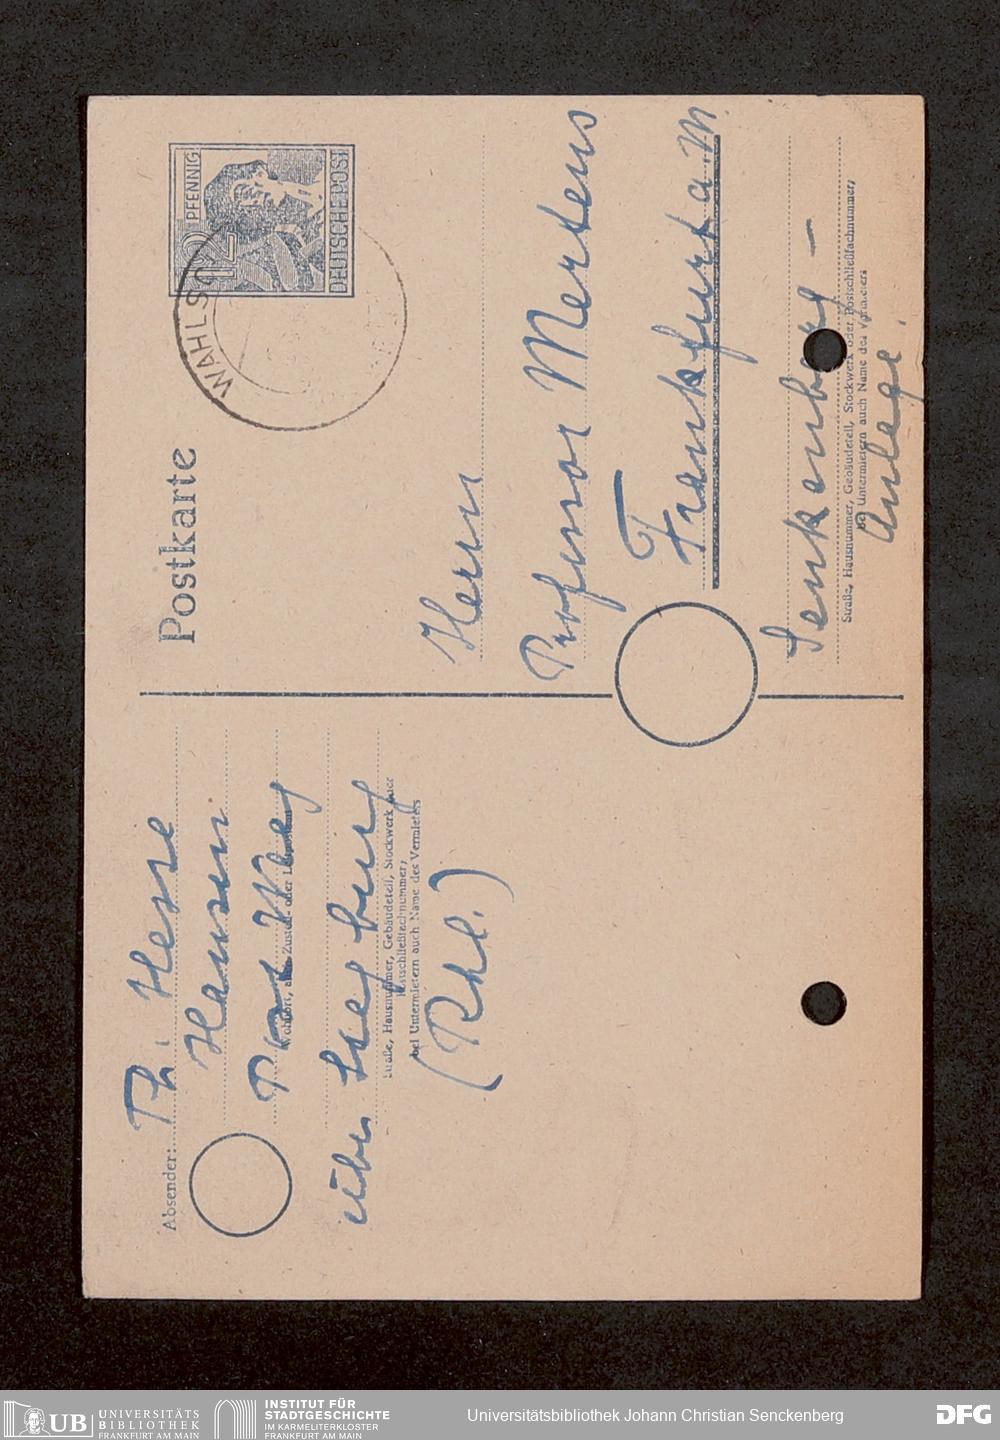 Postkarte
12 PFENNIG
DEUTSCHE POST
WAHLSC
Absender:
Th. Hesse
Hausen
Post
über Siegburg
(Rhl.)
Wohnort, auch Zustell- oder Leitpostamt
Straße, Hausnummer, Gebäudeteil, Stockwerk oder
Postschließfachnummer;
bei Untermietern auch Name des Vermieters
Herrn
Professor Mertens
Frankfurt a. M.
Senkenberg-
Anlage!
Straße, Hausnummer, Gebäudeteil, Stockwerk oder Postschließfachnummer;
bei Untermietern auch Name des Vermieters
UB UNIVERSITÄTS
BIBLIOTHEK
FRANKFURT AM MAIN
INSTITUT FÜR
STADTGESCHICHTE
IM KARMELITERKLOSTER
FRANKFURT AM MAIN
Universitätsbibliothek Johann Christian Senckenberg
DFG